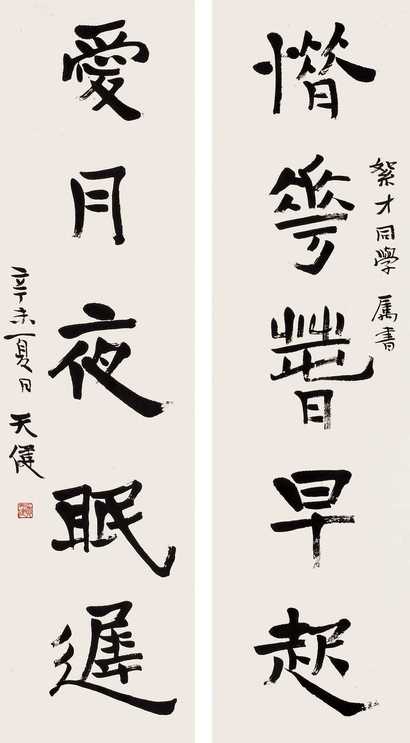 絜才同學 属書
惜花萅早起
愛月夜眠遲
辛未夏日 天健